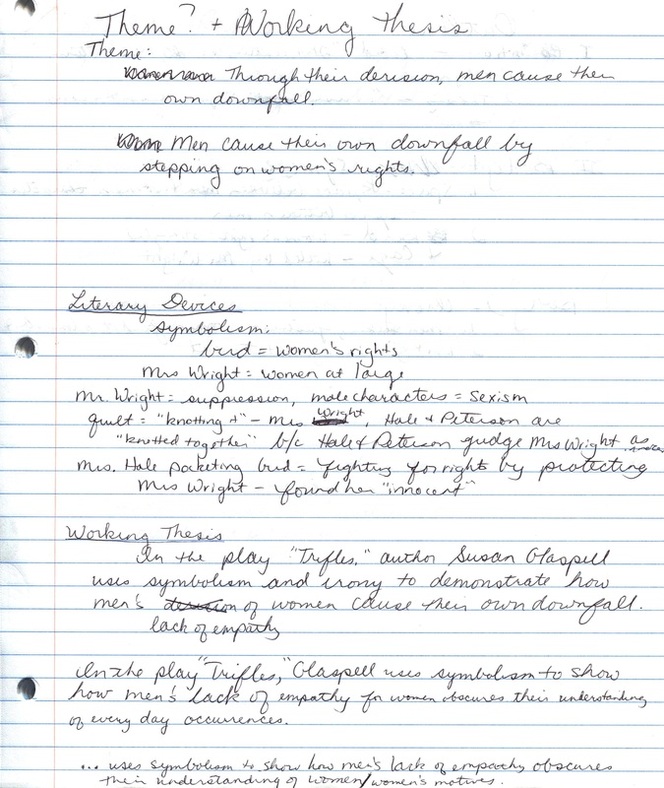 Theme? + Working thesis
Theme:
Through their derision, men cause their
own downfall.
Men cause their own downfall by
stepping on women's rights.
Literary Devices
symbolism:
bird = women's rights
Mrs Wright = women at large
Mr. Wright = suppression, male characters = sexism
quilt = "knotting it" - Mrs Wright, Hale + Peterson are
"knotted together" b/c Hale & Peterson judge Mrs Wright as
Mrs. Hale pocketing bird = fighting for right by protecting
Mrs Wright - found her "innocent"
Working Thesis
In the play "Trifles," author Susan Glaspell
uses symbolism and irony to demonstrate how
men's derision of women cause their own downfall.
lack of empathy
In the play "Trifles," Glaspell uses symbolism to show
how men's lack of empathy for women obscures their understanding
of every day occurrences.
... uses symbolism to show how men's lack of empathy obscures
their understanding of women/women's motives.